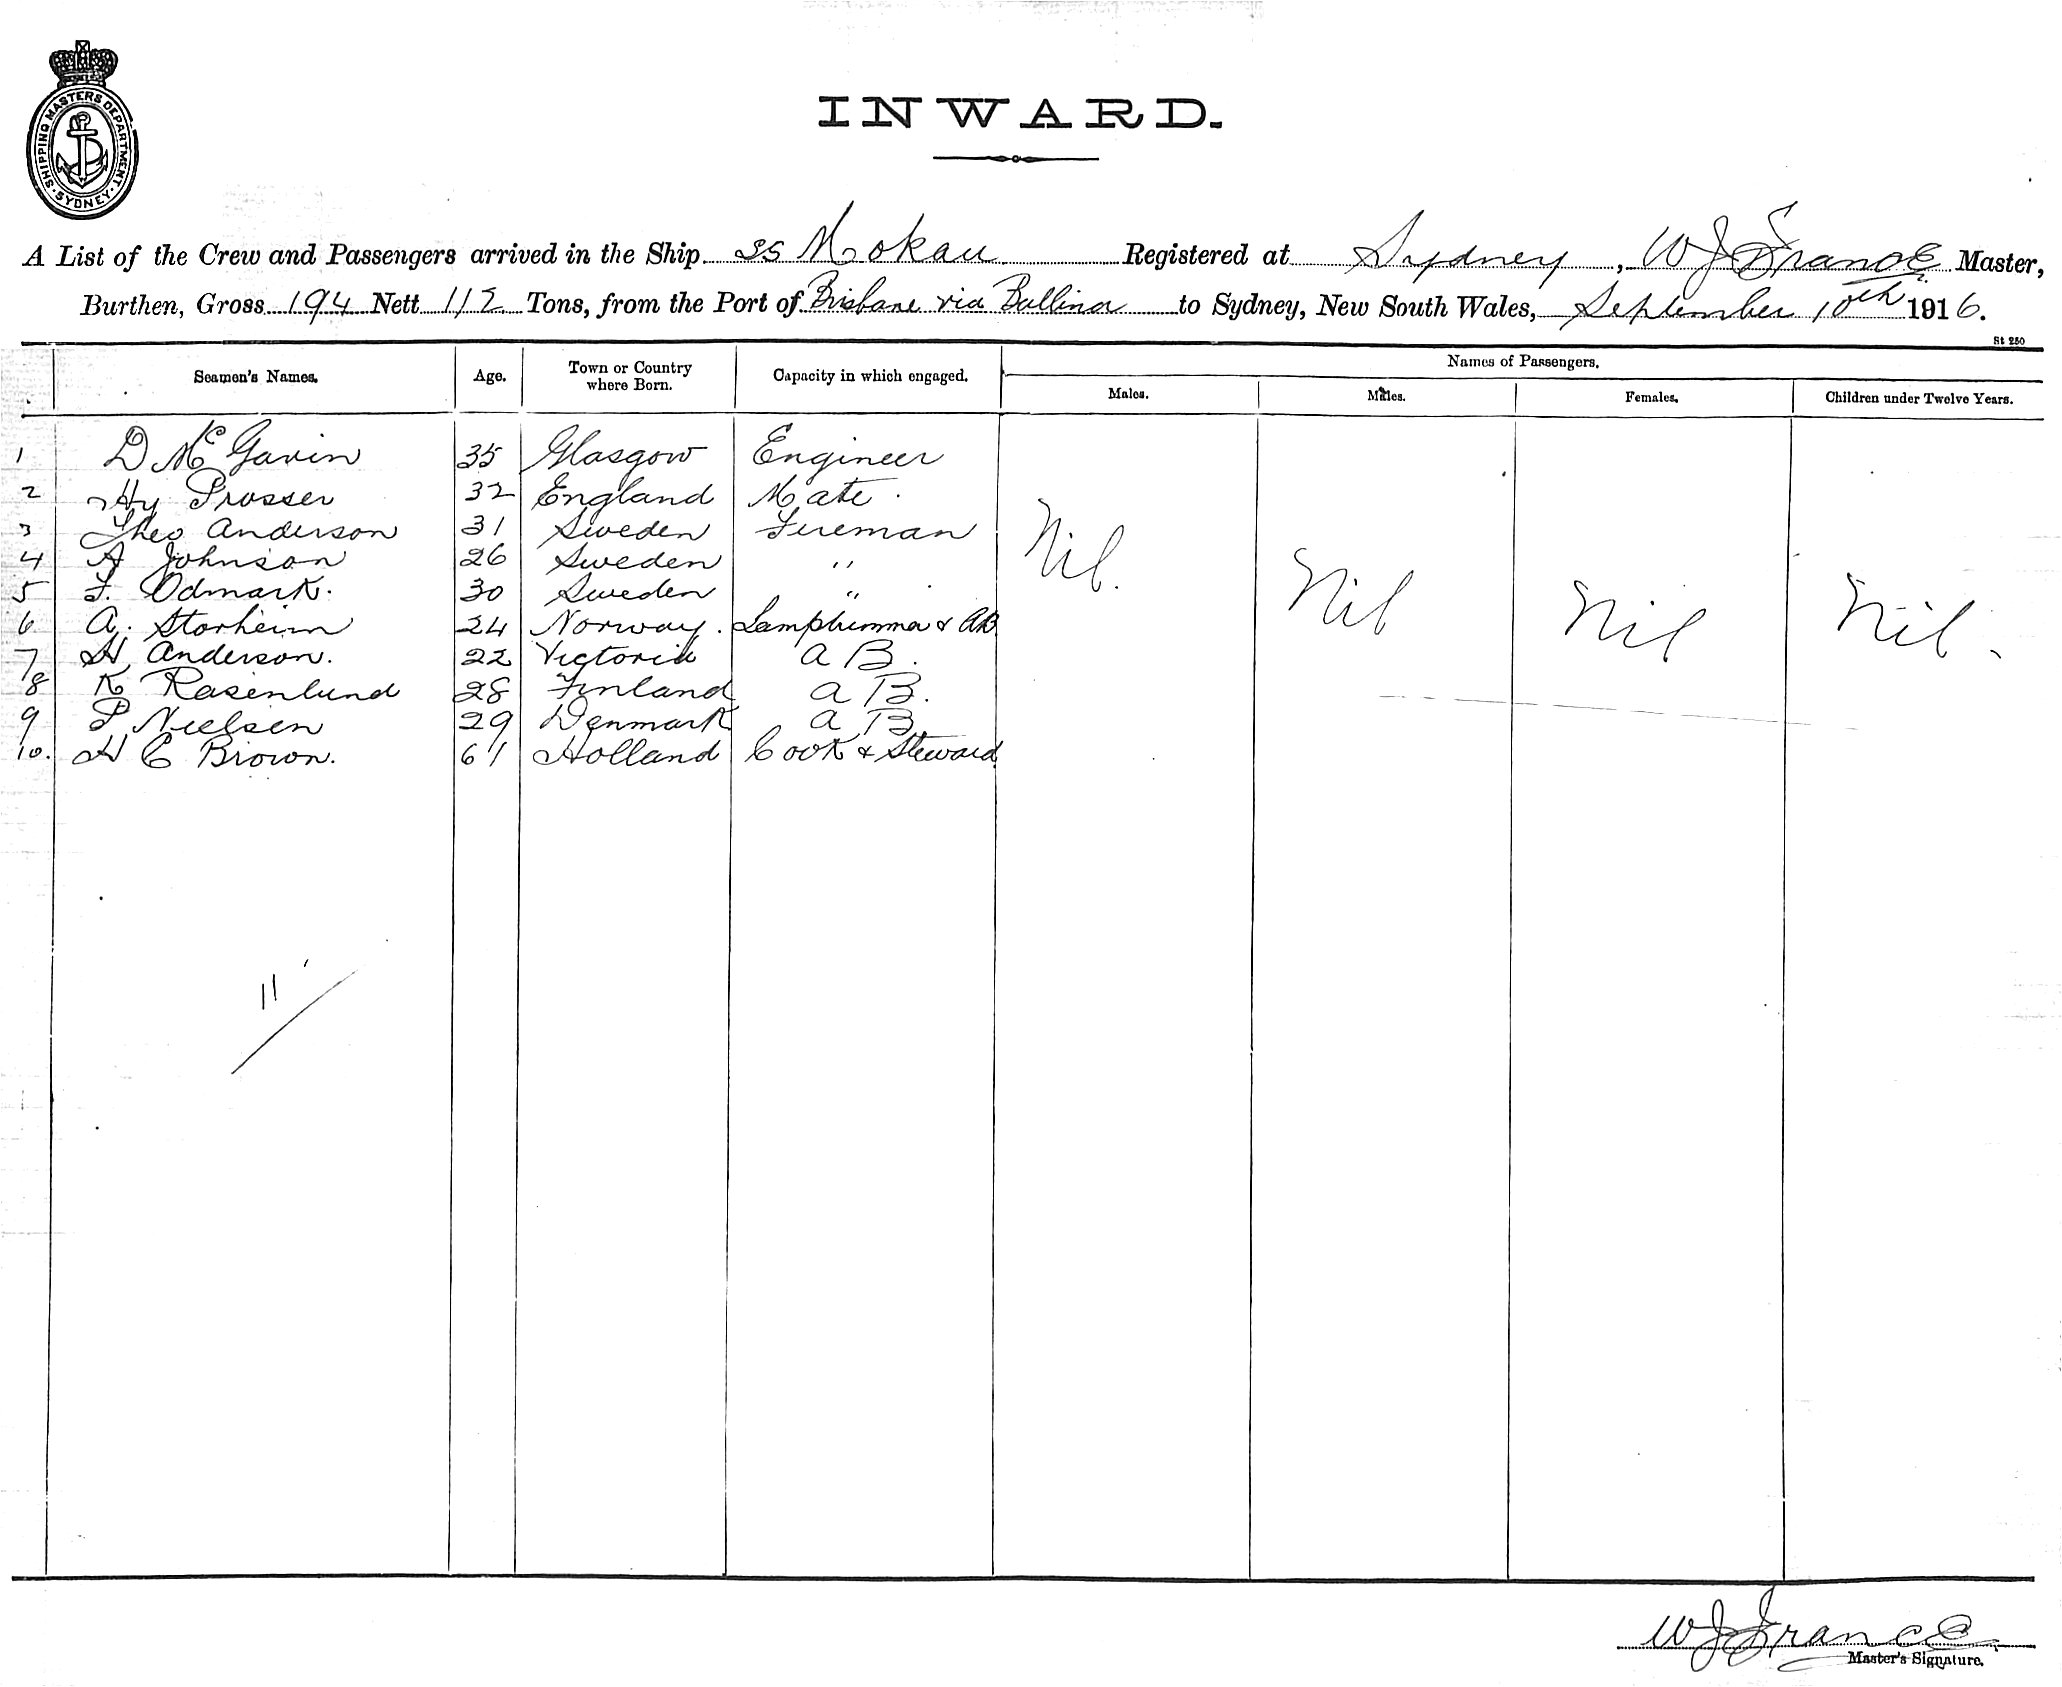 SHIPPING MASTERS DEPARTMENT. SYDNEY
INWARD.
A List of the Crew and Passengers arrived in the Ship SS Mokau Registered at Sydney, W J France Master,
Burthen, Gross 194 Nett 112 Tons, from the Port of Brisbane via Ballina to Sydney, New South Wales, September 10th 1916.
St 250
Seamen's Names. Age. Town or Country where Born. Capacity in which engaged. Names of Passengers.
Males. Males. Females. Children under Twelve Years.
1 D McGavin 35 Glasgow Engineer
2 Hy Prosser 32 England Mate.
3 Theo Anderson 31 Sweden Fireman
4 A Johnson 26 Sweden "
5 F. Odmark. 30 Sweden "
6 A. Storheim 24 Norway. Lamptrimmer & AB
7 H Anderson. 22 Victoria A B.
8 K Rasenlund 28 Finland A B.
9 P Nielsen 29 Denmark A B
10. H C Brown. 61 Holland Cook & Steward.
Nil. Nil Nil Nil.
11
W J France
Master's Signature.